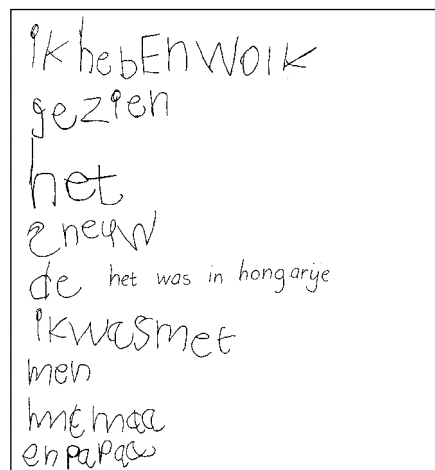 ik hebEnWolk
gezien
het
eneuw
de het was in hongarije
ikwasmet
men
maa
enpapaa